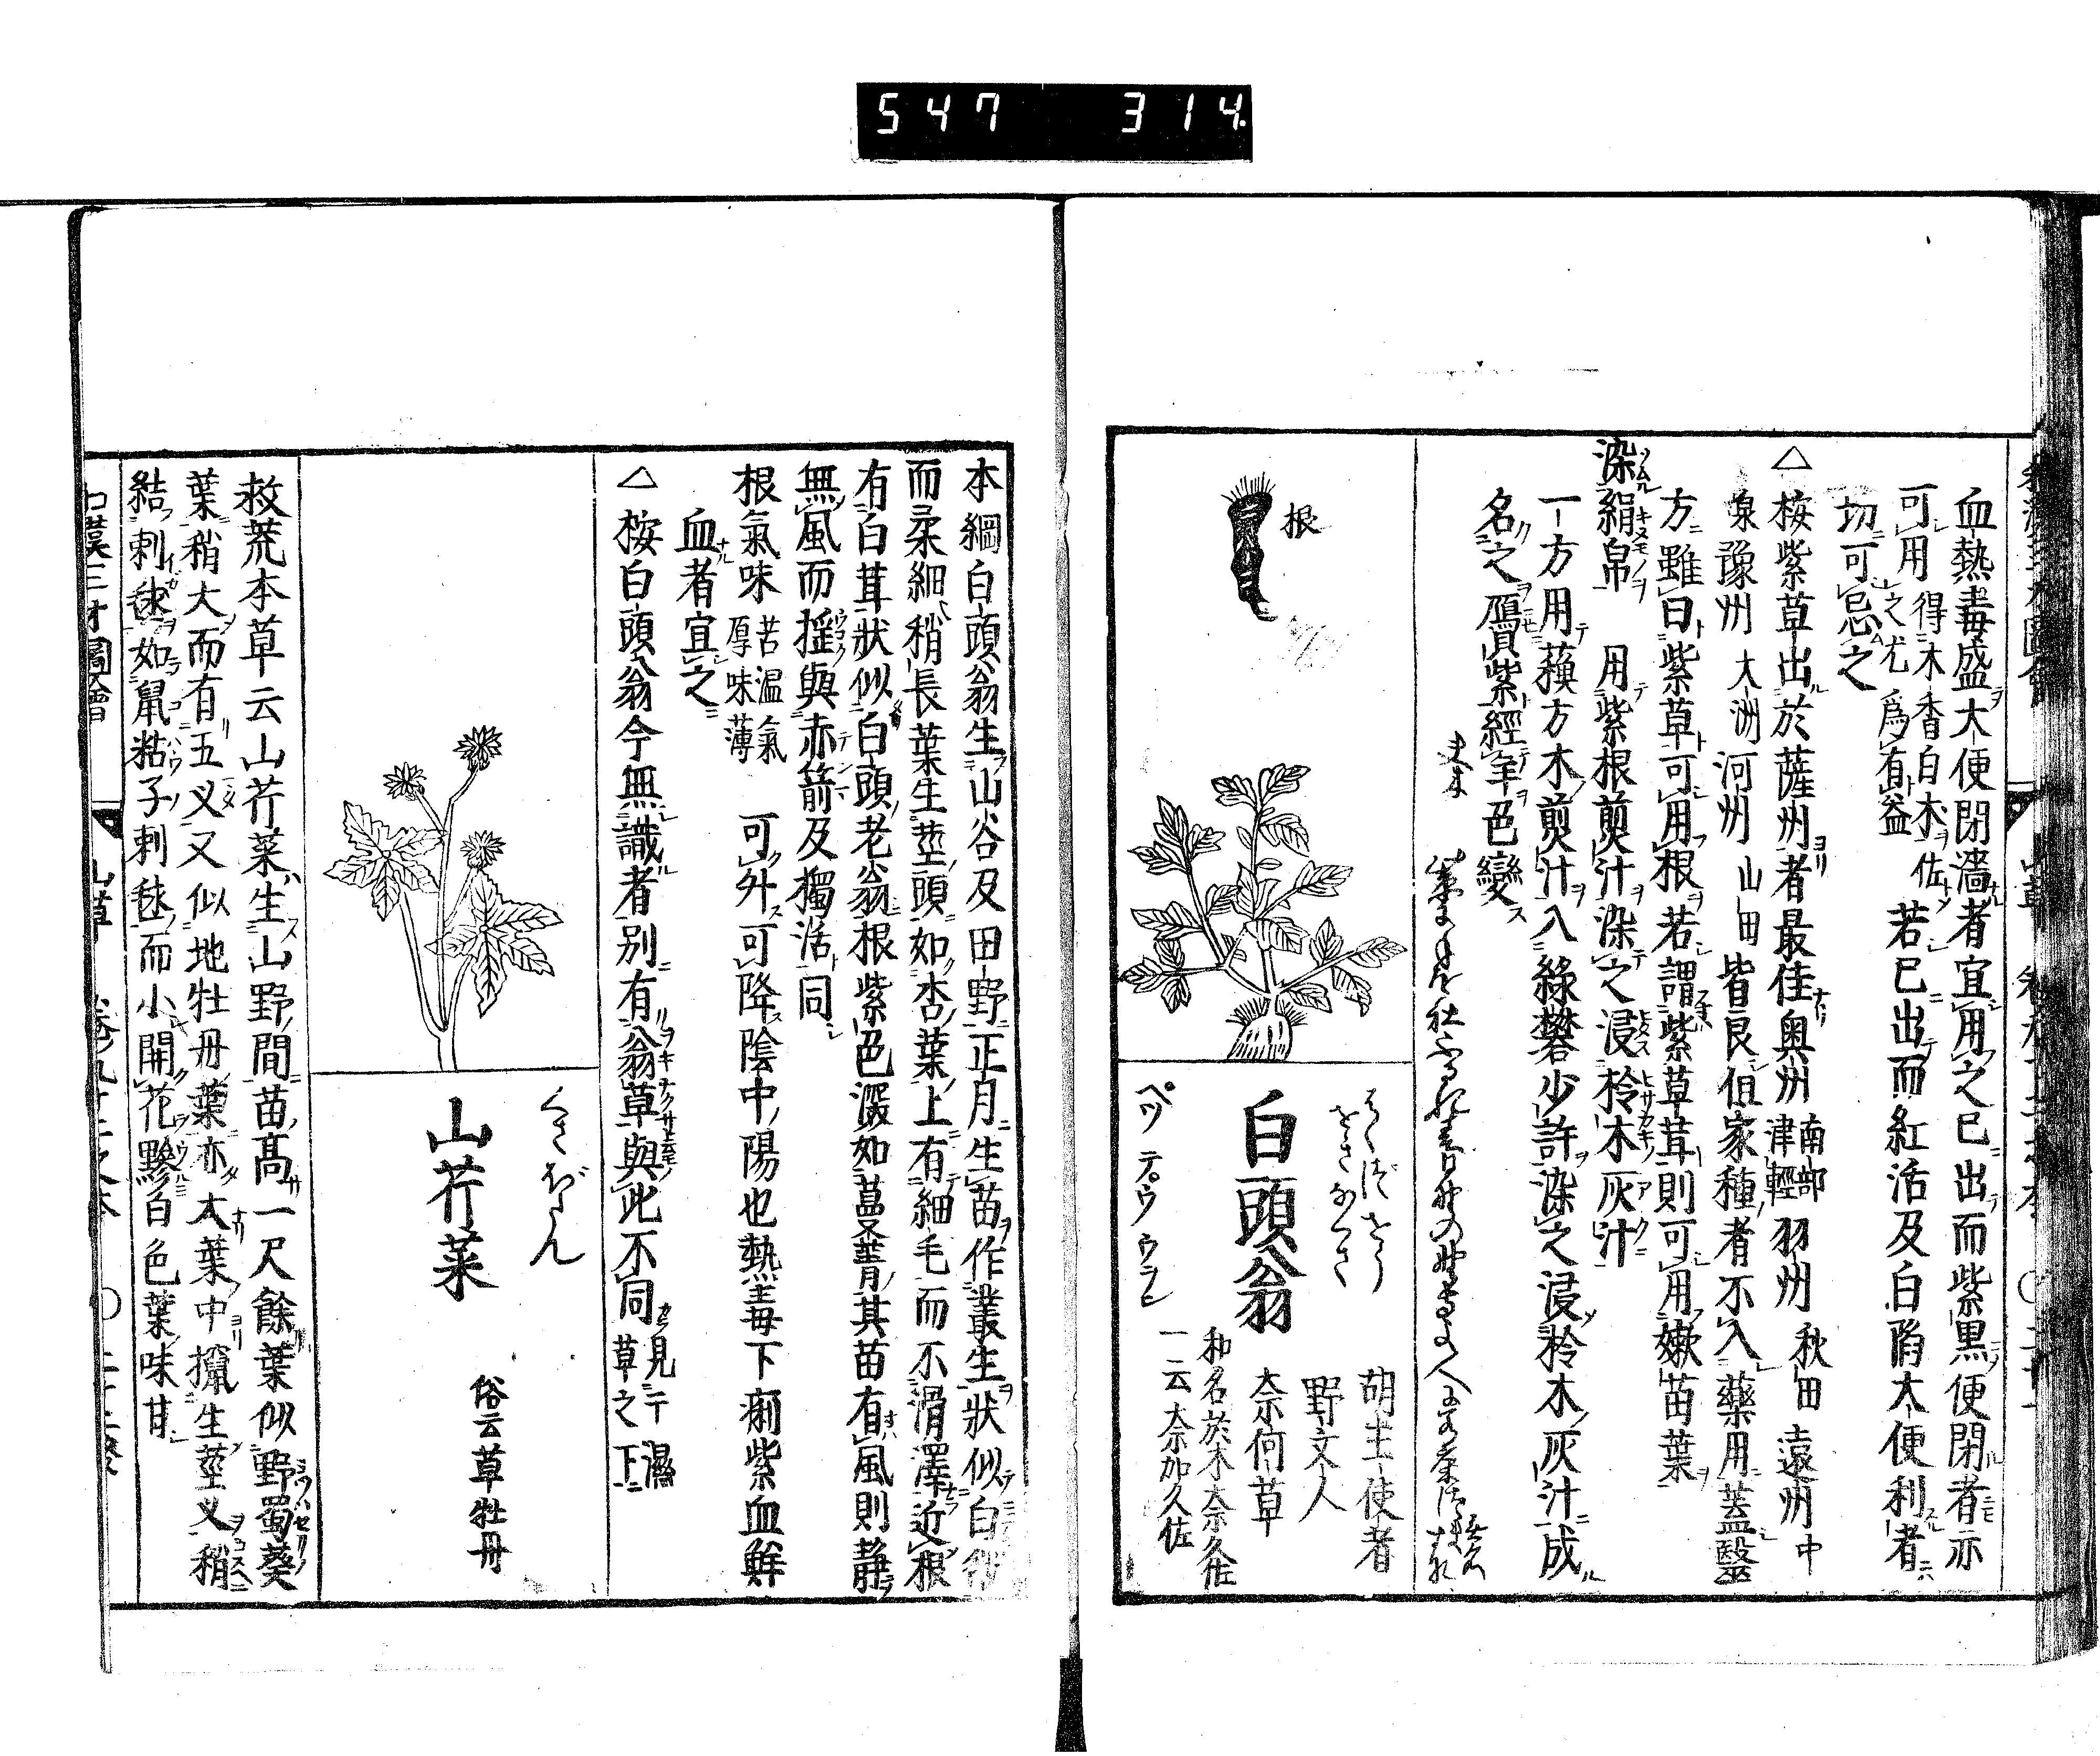 547 314
血熱毒盛大便閉濇者宜用之已出而紫黒便閉者亦
可用得木香白朮佐之尤爲有益若已出而紅活及白䧟大便利者
切可忌之
△桉紫草出於薩州者最佳奥州南部津輕羽州秋田遠州中
泉豫州大洲河州山田皆良但家種者不入藥用蓋醫
方雖曰紫草可用根若謂紫草茸則可用嫩苗葉
染絹帛 用紫根煎汁染之浸柃木灰汁
一方用蘓方木煎汁入綠礬少許染之浸柃木灰汁成
名之贋紫經年色變
根
白頭翁
はくづをう
をきなぐさ
胡王使者
野丈人
奈何草
和名於木奈久佐
一云奈加久佐
ペツ テ゚ウ ウヲン
本綱白頭翁生山谷及田野正月生苗作叢生狀似白
而柔細稍長葉生莖頭如杏葉上有細毛而不滑澤近根
有白茸狀似白頭老翁根紫色深如蔓菁其苗有風則静
無風而揺與赤箭及獨活同
根氣味苦温氣厚味薄 可外可降陰中陽也熱毒下痢紫血鮮
血者宜之
△桉白頭翁今無識者別有翁草與此不同見于濕草之下
くさぼたん
山芥菜
俗云草牡丹
救荒本草云山芥菜生山野間苗高一尺餘葉似野蜀葵
葉稍大而有五义又似地牡丹葉亦大葉中攛生莖义稍
結刺毬如鼠粘子刺毬而小開花黲白色葉味甘
山草